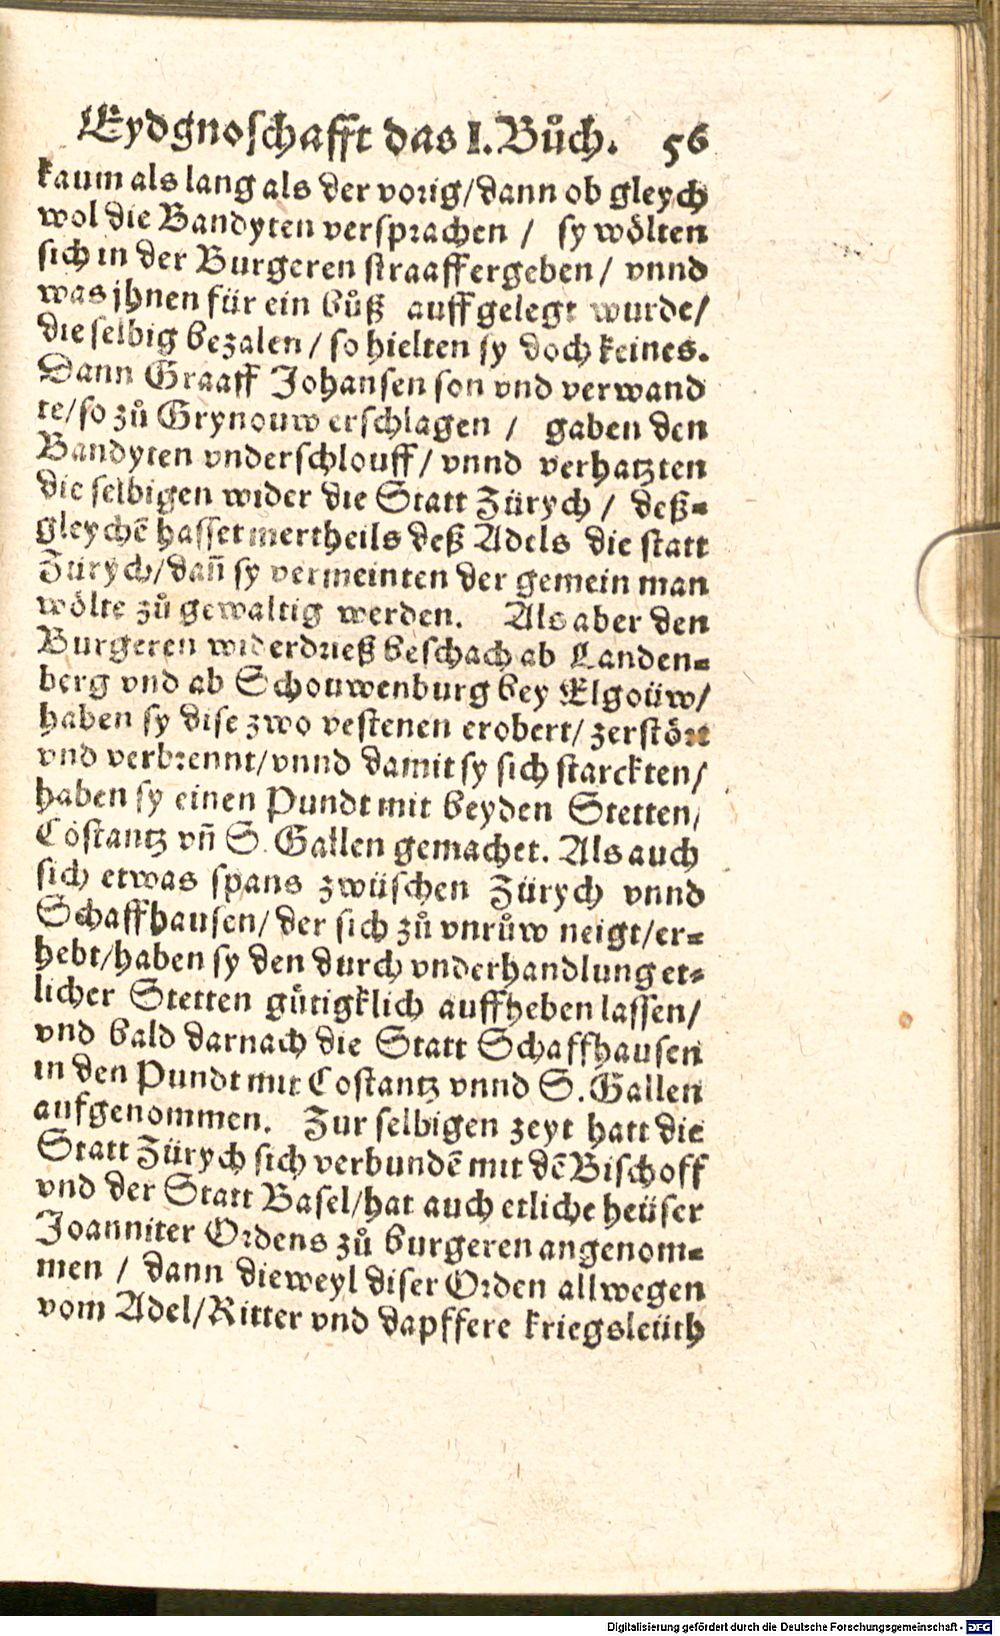 Eydgnoschafft das I. Bůch. 56
kaum als lang als der vorig/dann ob gleych
wol die Bandyten versprachen / sy wölten
sich in der Burgeren straaff ergeben/ vnnd
was jhnen für ein bůß auffgelegt wurde/
die selbig bezalen/ so hielten sy doch keines.
Dann Graaff Johansen son vnd verwand
te/so zů Grynouw erschlagen / gaben den
Bandyten vnderschlouff/ vnnd verhatzten
die selbigen wider die Statt Zürych / deß-
gleychẽ hasset mertheils deß Adels die statt
Zürych/dañ sy vermeinten der gemein man
wölte zů gewaltig werden. Als aber den
Burgeren widerdrieß beschach ab Landen-
berg vnd ab Schouwenburg bey Elgoüw/
haben sy dise zwo vestenen erobert/ zerstört
vnd verbrennt/vnnd damit sy sich starckten/
haben sy einen Pundt mit beyden Stetten/
Costantz vñ S. Gallen gemachet. Als auch
sich etwas spans zwüschen Zürych vnnd
Schaffhausen/ der sich zů vnrůw neigt/er-
hebt/haben sy den durch vnderhandlung et-
licher Stetten gütigklich auffheben lassen/
vnd bald darnach die Statt Schaffhausen
in den Pundt mit Costantz vnnd S. Gallen
aufgenommen. Zur selbigen zeyt hatt die
Statt Zürych sich verbundẽ mit dẽ Bischoff
vnd der Statt Basel/hat auch etliche heüser
Joanniter Ordens zů burgeren angenom-
men / dann dieweyl diser Orden allwegen
vom Adel/Ritter vnd dapffere kriegsleüth
Digitalisierung gefördert durch die Deutsche Forschungsgemeinschaft - DFG